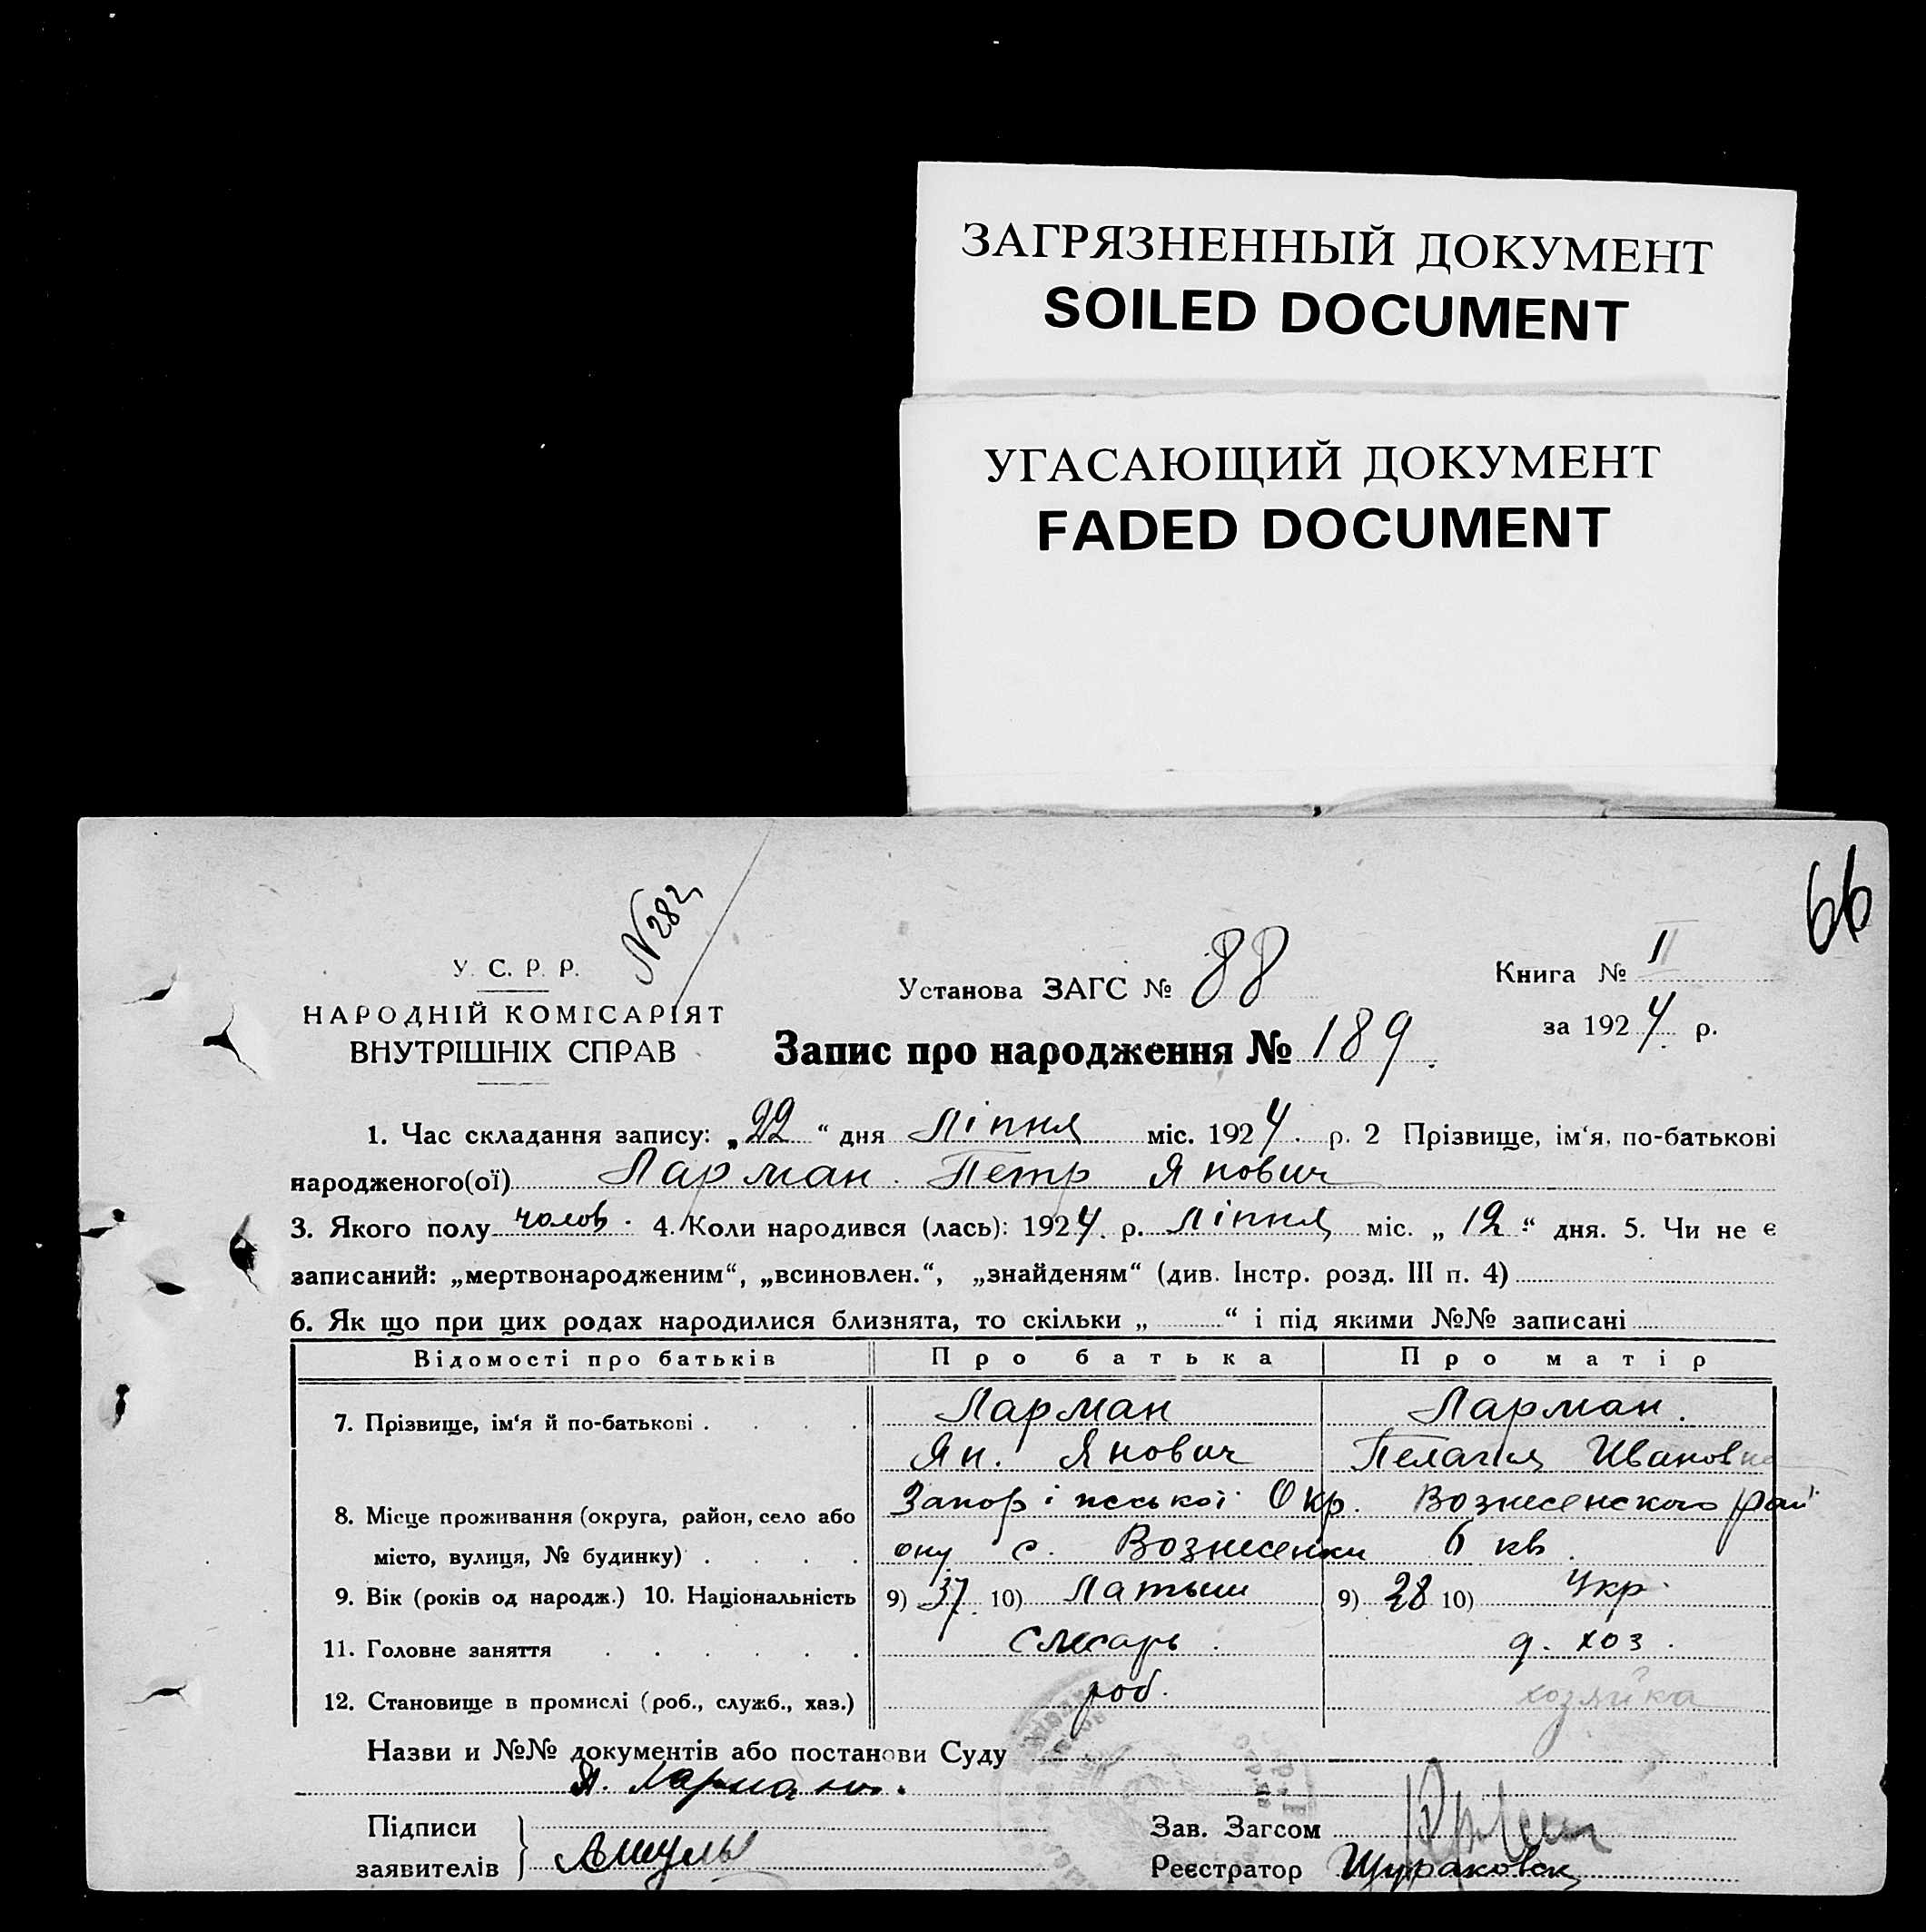 ЗАГРЯЗНЕННЫЙ ДОКУМЕНТ
SOILED DOCUMENT
УГАСАЮЩИЙ ДОКУМЕНТ
FADED DOCUMENT
66
N 282
У. С. Р. Р.
НАРОДНІЙ КОМІСАРІЯТ
ВНУТРІШНІХ СПРАВ
Установа ЗАГС № 88
Книга № II
за 1924 р.
Запис про народження № 189.
1. Час складання запису: „22“ дня Ліпня міс. 1924. р. 2 Прізвище, ім‘я, по-батькові
народженого(ої) Ларман. Петр Янович
3. Якого полу чолов. 4. Коли народився (лась): 1924. р. Ліпня міс. „12“ дня. 5. Чи не є
записаний: „мертвонародженим“, „всиновлен.“, „знайденям“ (див. Інстр. розд. III п. 4)
6. Як що при цих родах народилися близнята, то скільки „ “ і під якими №№ записані
Відомості про батьків Про батька Про матір
7. Прізвище, ім‘я й по-батькові . . . . Ларман Ларман.
Ян. Янович Пелагия Ивановна
8. Місце проживання (округа, район, село або Запоріжської Окр. Вознесенского рай
місто, вулиця, № будинку) . . . . ону с. Вознесенки 6 кв.
9. Вік (років од народж.) 10. Національність 9) 37. 10) Латыш 9) 28 10) Укр.
11. Головне заняття . . . . . . Слесарь. д. хоз.
12. Становище в промислі (роб., служб., хаз.) роб. хозяйка
Назви и №№ документів або постанови Суду
Я. Ларман.
Підписи
заявителів
Зав. Загсом
Реєстратор